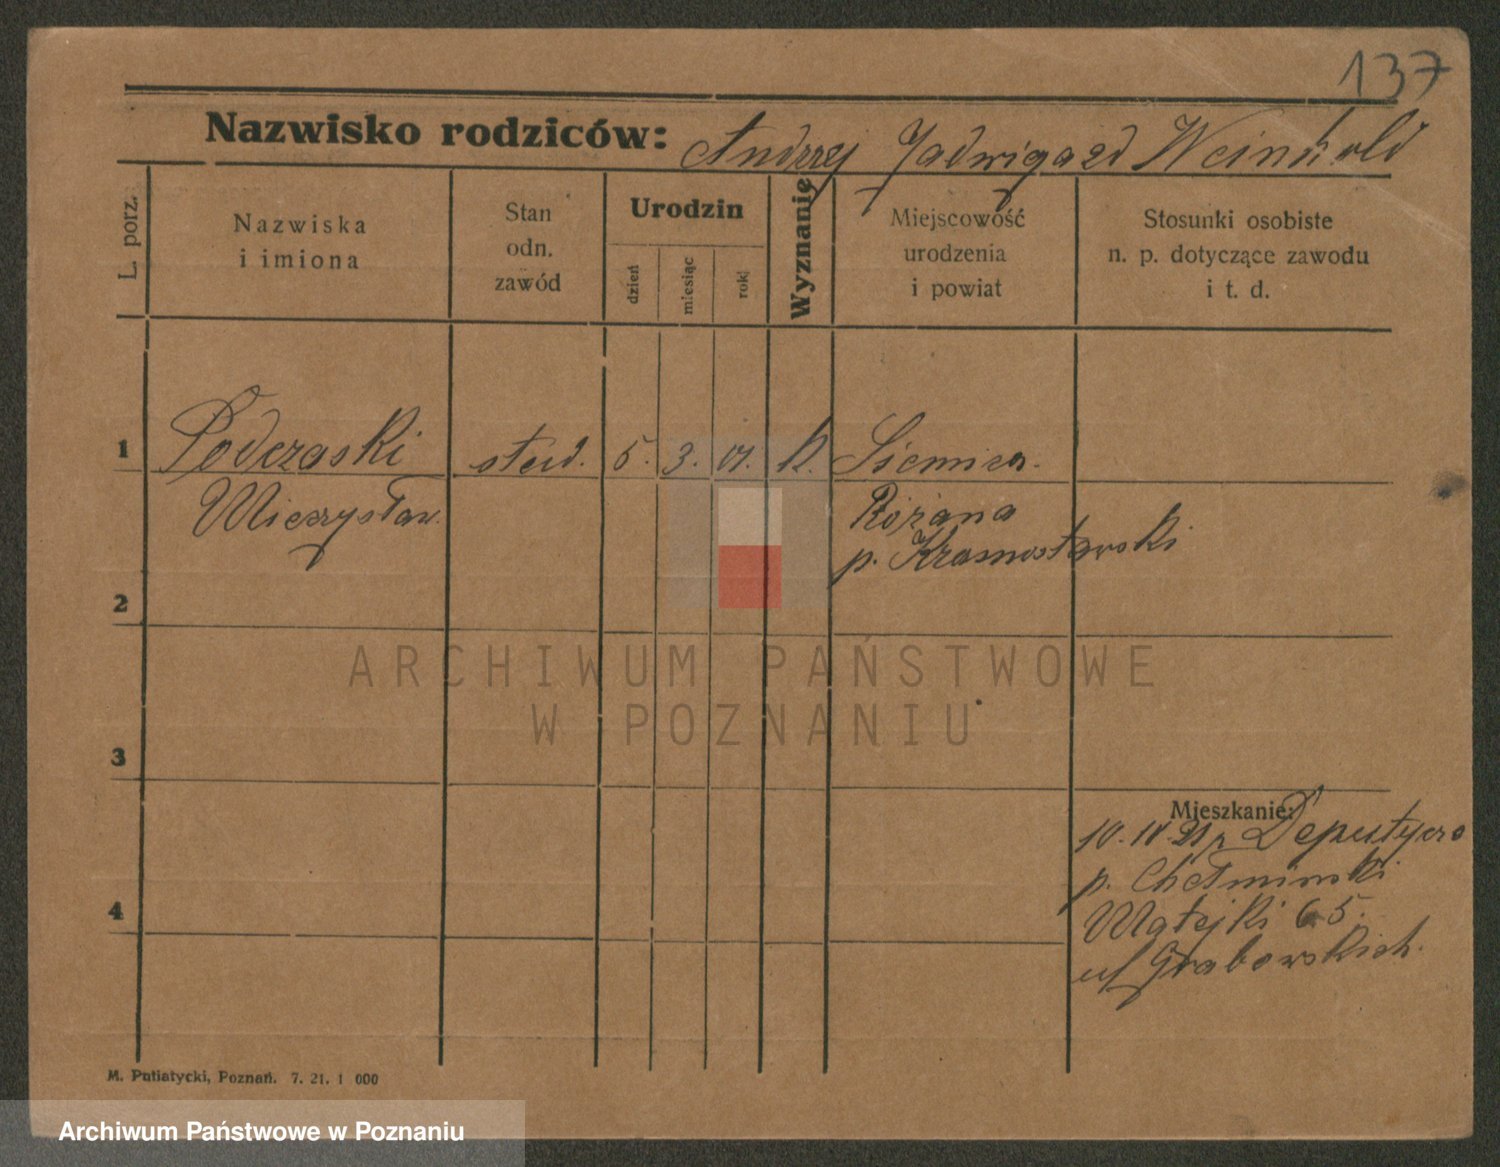 137
Nazwisko rodziców: Andrzej Jadwiga zd Weinhold
L. porz.
Nazwiska
i imiona
Stan
odn.
zawód
Urodzin
dzień
miesiąc
rok
Wyznanie
Miejscowość
urodzenia
i powiat
Stosunki osobiste
n. p. dotyczące zawodu
i t. d.
1
Podczaski
stud.
5.
3.
01.
k.
Siennica
Mieczysław
Różana
p. Krasnostawski
2
ARCHIWUM PAŃSTWOWE
W POZNANIU
3
Mieszkanie:
10. IV. 21 Depułtycze
p. Chełmiński
4
Matejki 65.
u Grabowskich.
M. Putiatycki, Poznań. 7. 21. 1 000
Archiwum Państwowe w Poznaniu